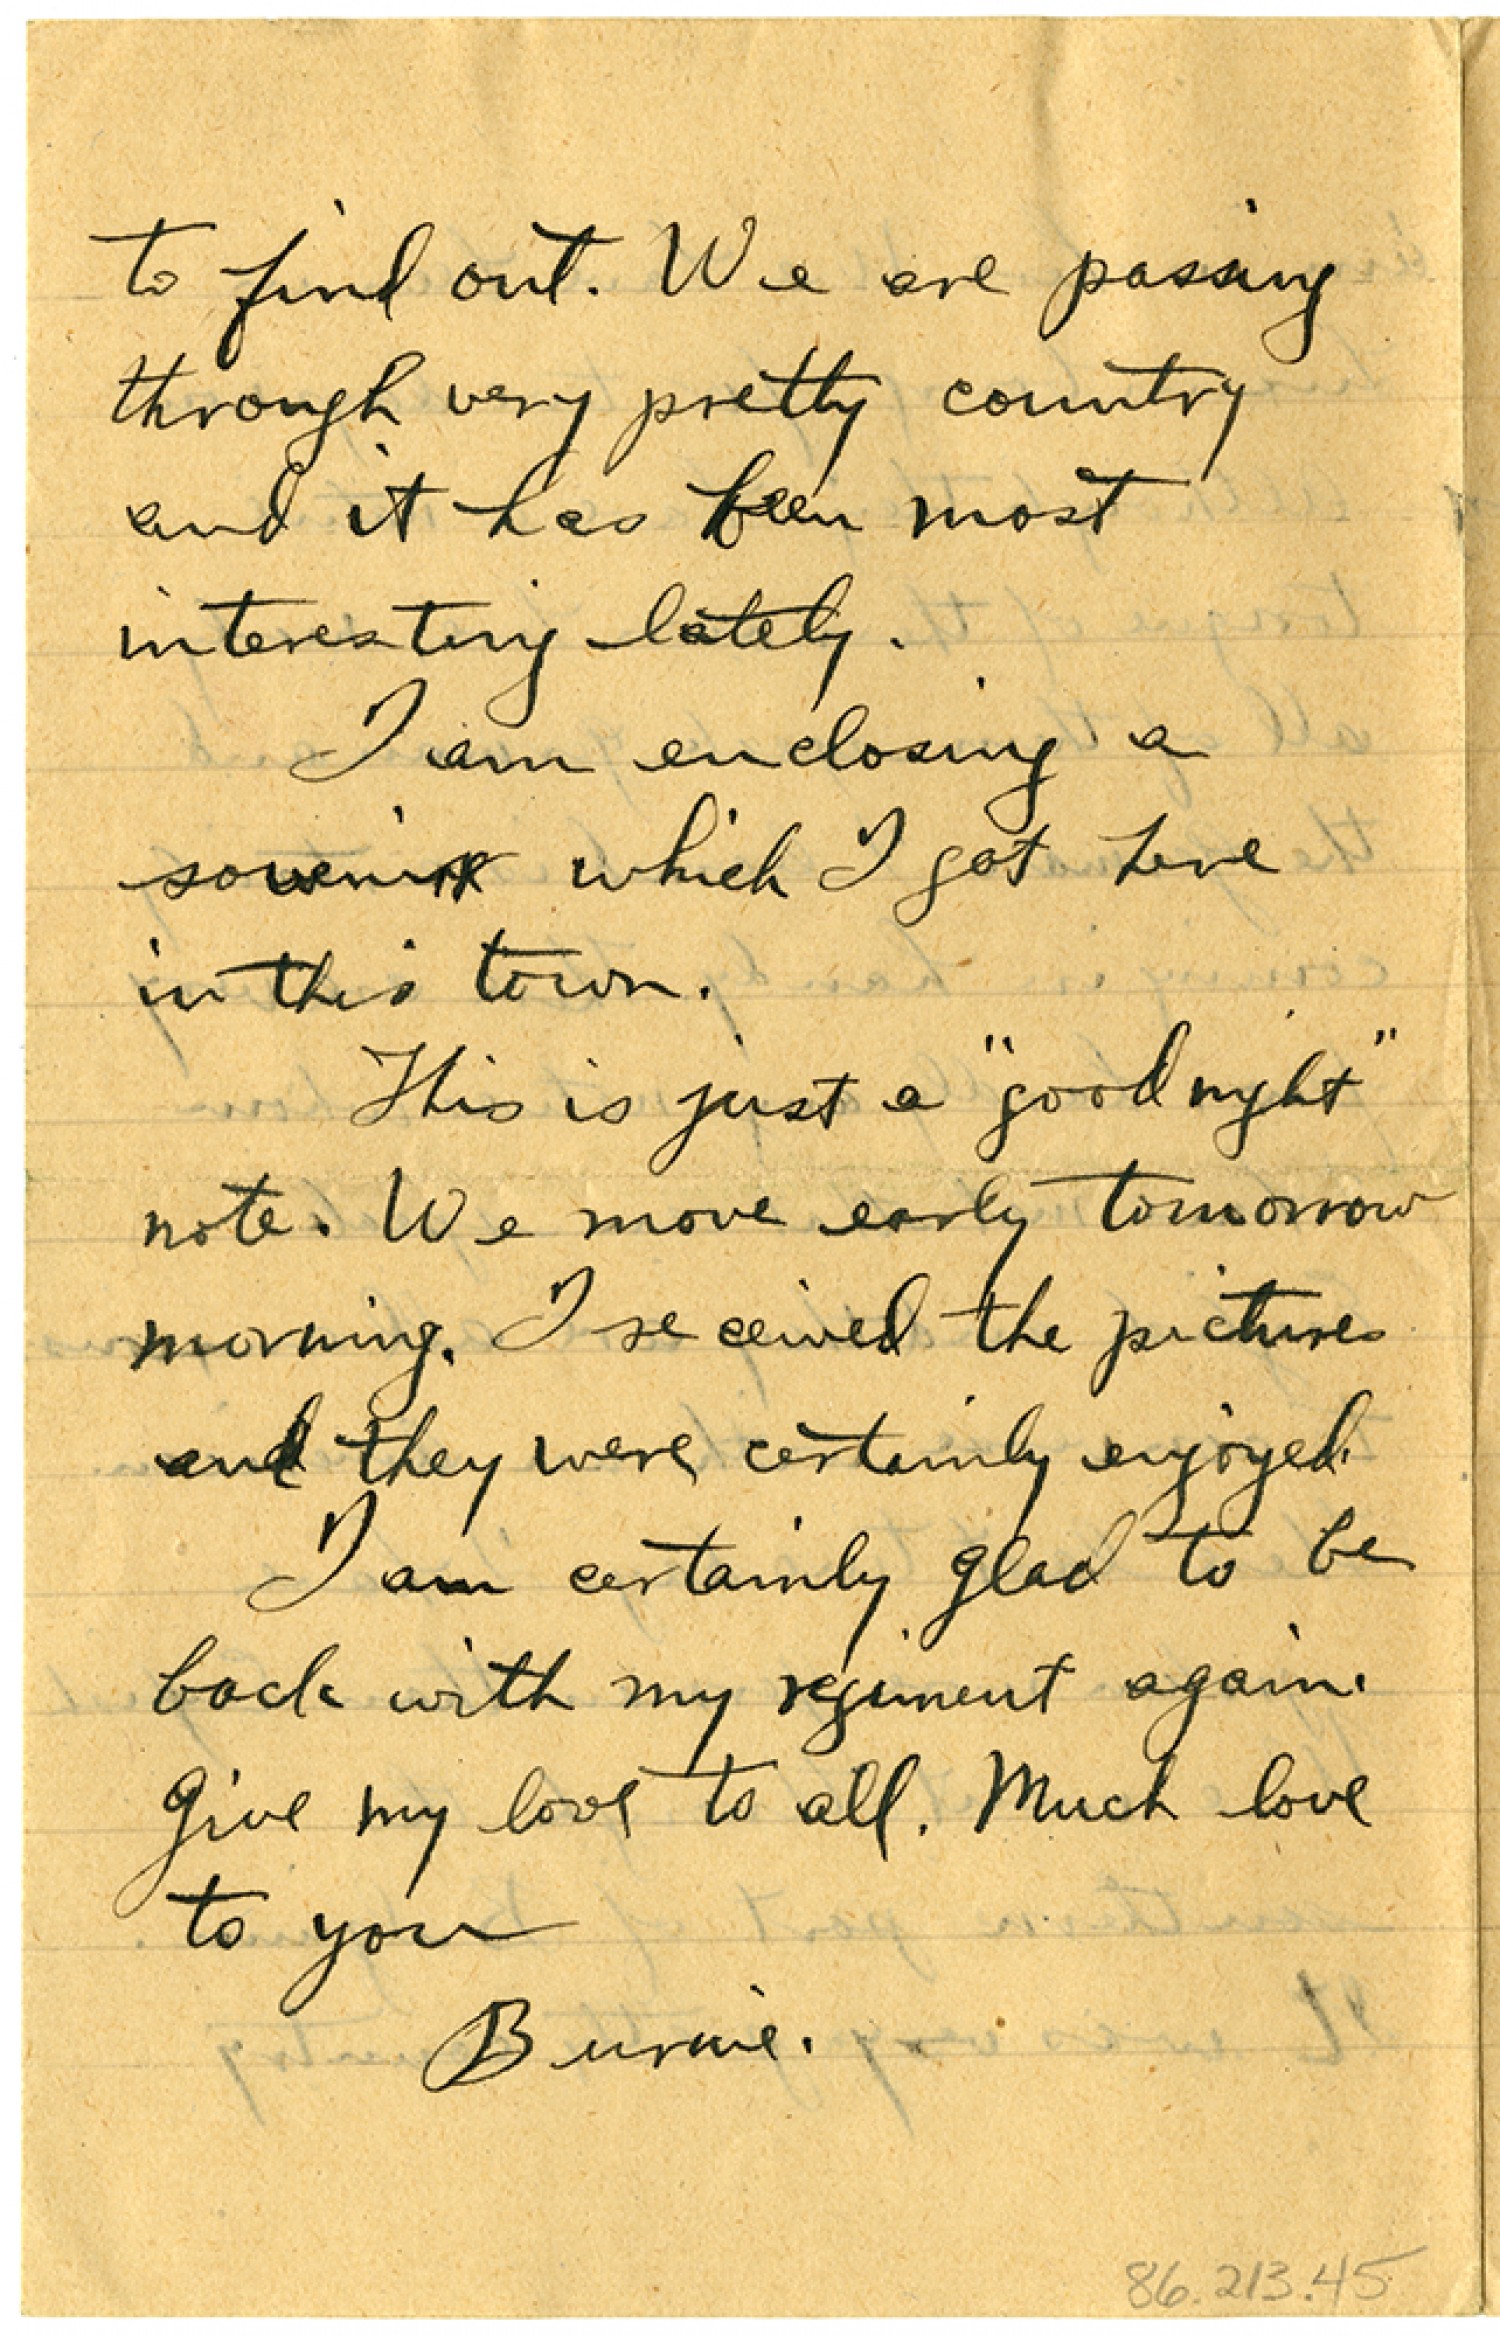 to find out. We are passing
through very pretty country
and it has been most
interesting lately.
I am enclosing a
souvenir which I got here
in this town.
This is just a "good night"
note. We move early tomorrow
morning. I received the pictures
and they were certainly enjoyed.
I am certainly glad to be
back with my regiment again.
Give my love to all. Much love
to you
Burnie.
86.213.45